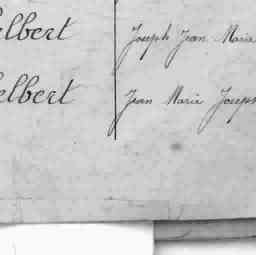 elbert Joseph Jean Marie
elbert Jean Marie Joseph